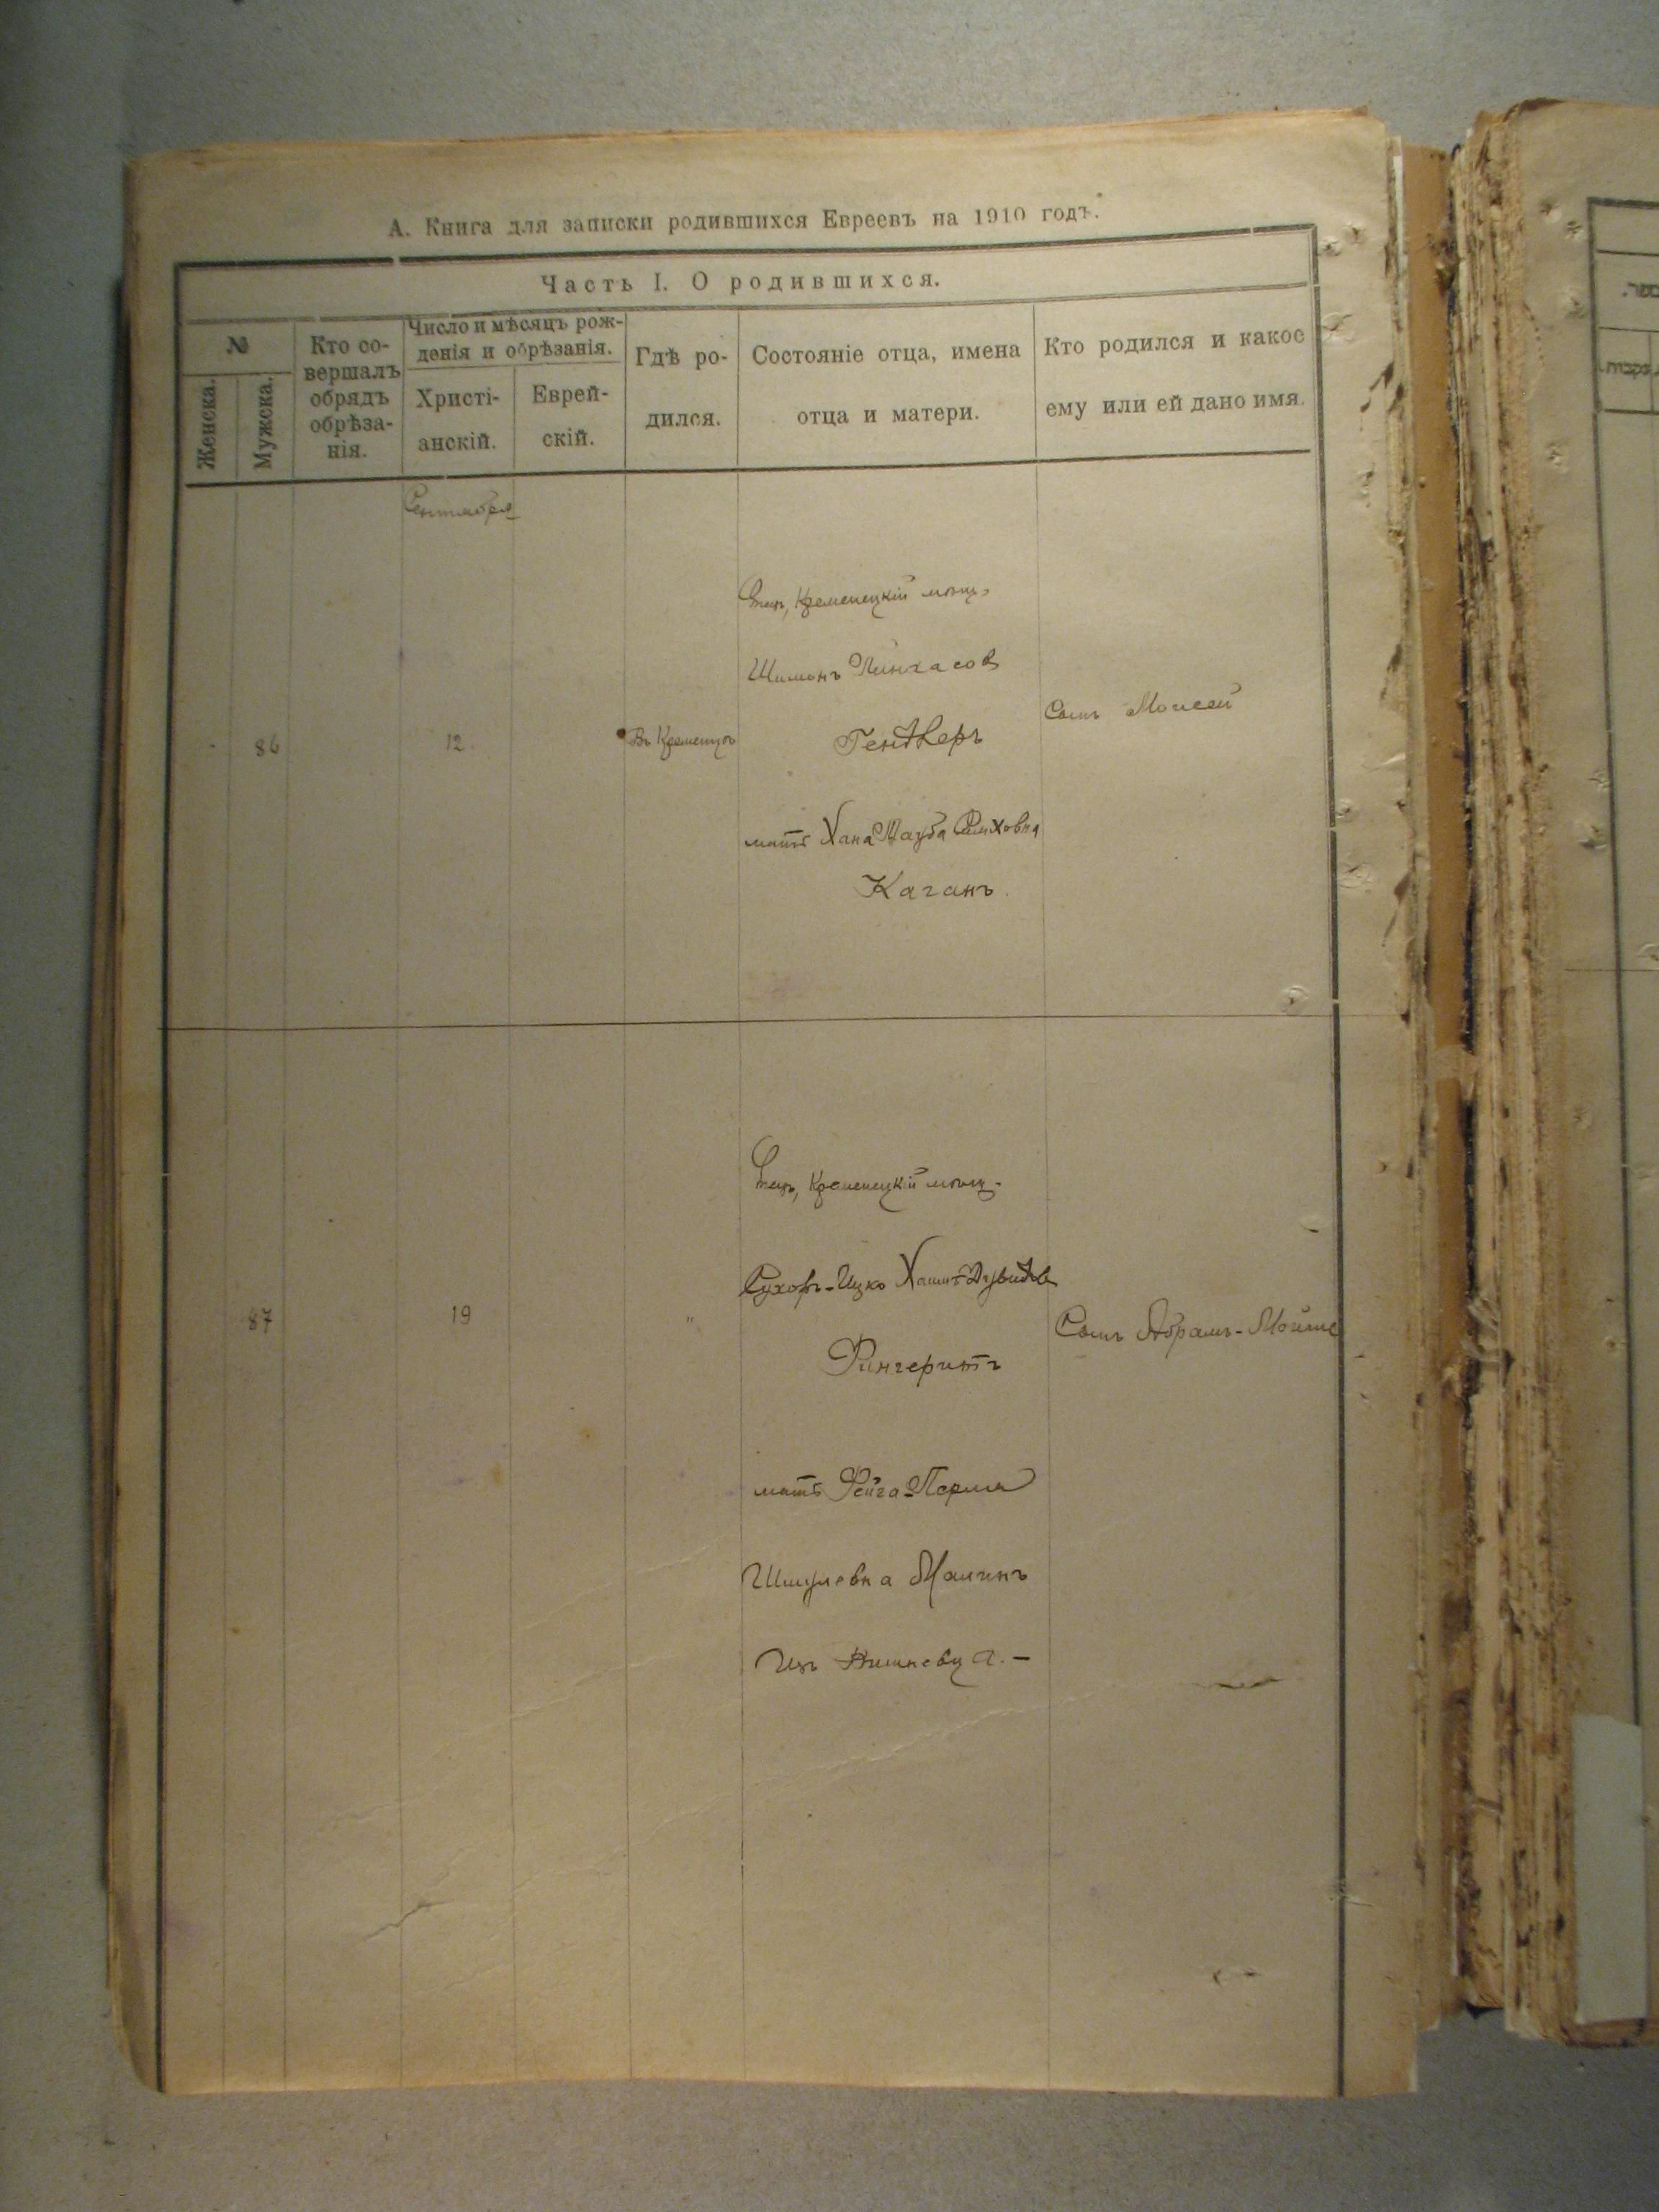 А. Книга для записки родившихся Евреевъ на 1910 годъ.
Часть I. О родившихся.
№
Женска.
Мужска.
Кто со-
вершалъ
обрядъ
обрѣза-
нія.
Число и мѣсяцъ рож-
денія и обрѣзанія.
Христі-
анскій.
Еврей-
скій.
Гдѣ ро-
дился.
Состояніе отца, имена
отца и матери.
Кто родился и какое
ему или ей дано имя.
Сентября
86
12
Въ Кременцѣ
Отец, Кременецкій мѣщ.
Шимонъ Пинхасов
Гендлеръ
мать Хана
Каганъ
Сынъ Моисей
87
19
"
Отецъ, Кременецкій мѣщ.
Сухоръ-Ицко Хаим-Дувидов
Рингеритъ
мать Фейга-Перля
Шмулевна Малинъ
Изъ Вишневца.-
Сынъ Абрамъ-Мойше